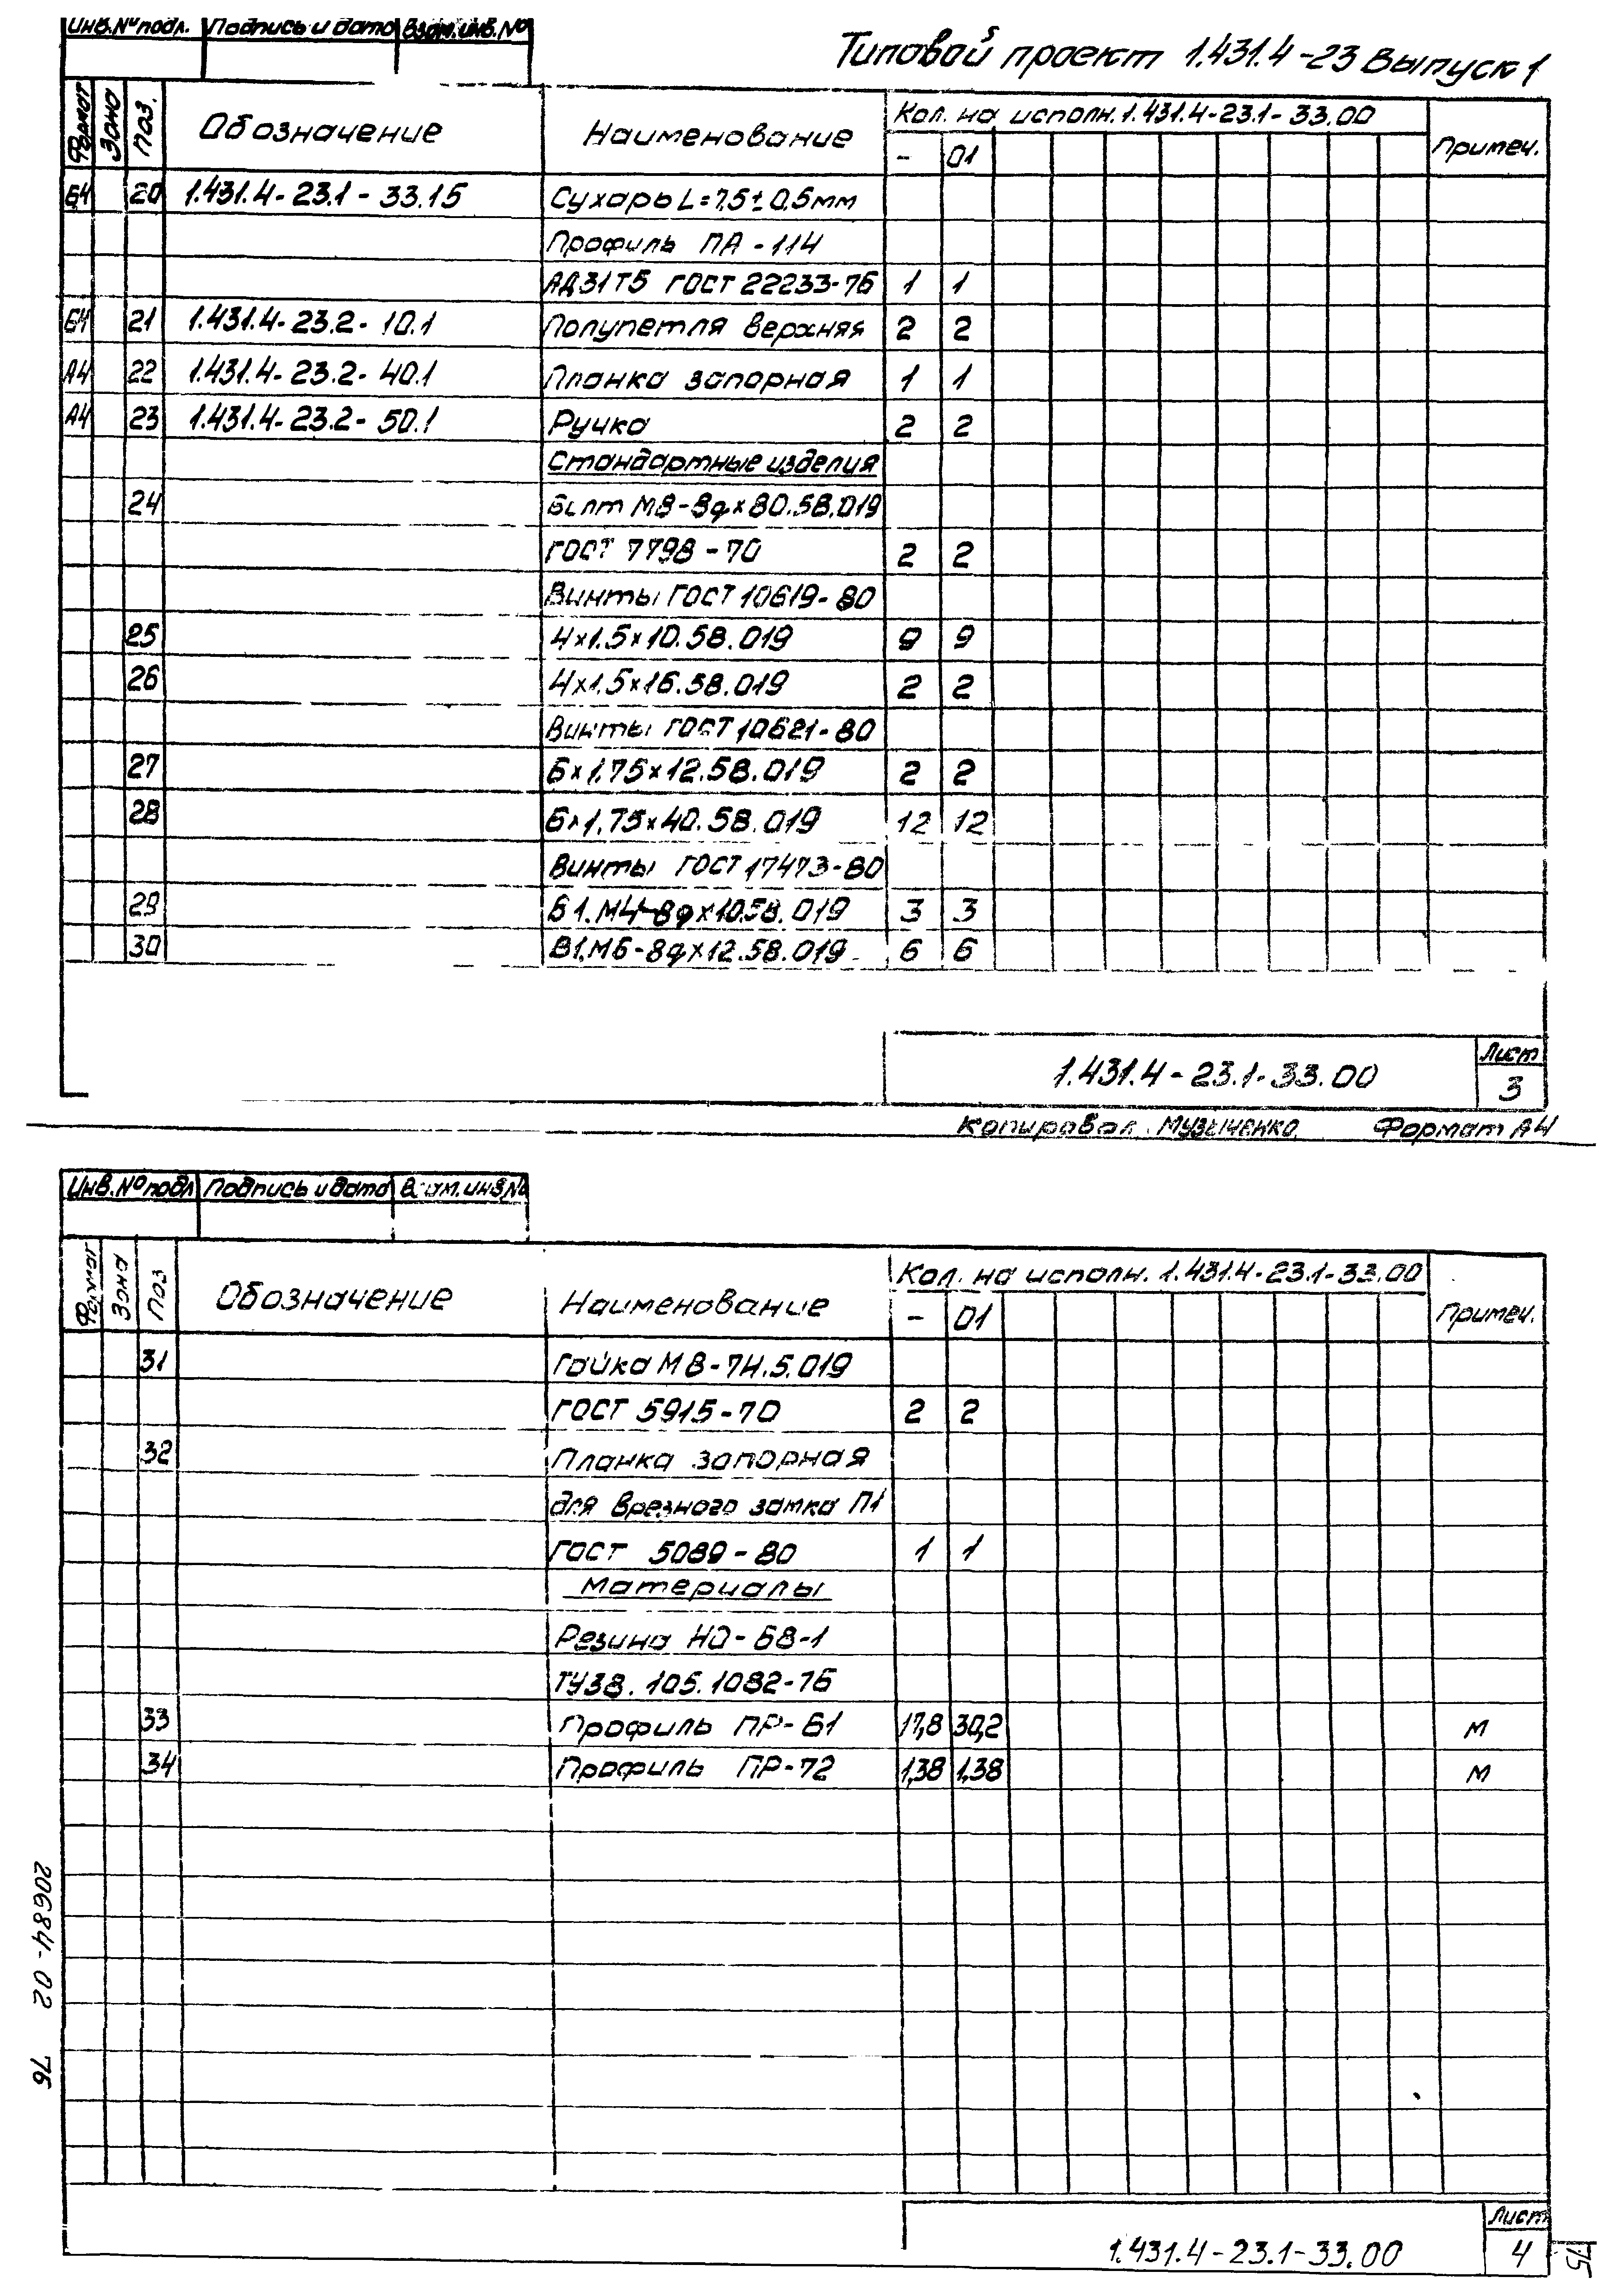 Инв.№ подл. Подпись и дата Взам.инв.№
Типовой проект 1.431.4-23 Выпуск 1
Формат Зона Поз. Обозначение Наименование Кол. на исполн. 1.431.4-23.1-33.00 Примеч.
- 01
БЧ 20 1.431.4-23.1-33.15 Сухарь L=7,5±0,5мм
Профиль ПА-114
АД31Т5 ГОСТ 22233-76 1 1
БЧ 21 1.431.4-23.2-10.1 Полупетля верхняя 2 2
А4 22 1.431.4-23.2-40.1 Планка запорная 1 1
А4 23 1.431.4-23.2-50.1 Ручка 2 2
Стандартные изделия
24 Болт М8-8g×80.58.019
ГОСТ 7798-70 2 2
Винты ГОСТ 10619-80
25 4×1.5×10.58.019 9 9
26 4×1.5×16.58.019 2 2
Винты ГОСТ 10621-80
27 6×1.75×12.58.019 2 2
28 6×1.75×40.58.019 12 12
Винты ГОСТ 17473-80
29 Б1.М4-8g×10.58.019 3 3
30 В1.М6-8g×12.58.019 6 6
1.431.4-23.1-33.00 Лист
3
Копировал Музыченко Формат А4
Инв.№ подл Подпись и дата Взам.инв.№
Формат Зона Поз Обозначение Наименование Кол. на исполн. 1.431.4-23.1-33.00 Примеч.
- 01
31 Гайка М8-7Н.5.019
ГОСТ 5915-70 2 2
32 Планка запорная
для врезного замка П1
ГОСТ 5089-80 1 1
Материалы
Резина НО-68-1
ТУ38.105.1082-76
33 Профиль ПР-61 17,8 30,2 м
34 Профиль ПР-72 1,38 1,38 м
1.431.4-23.1-33.00 Лист
4
20684-02 76
75